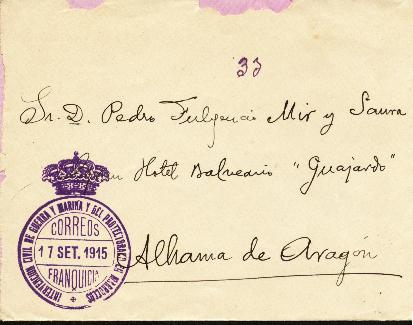 33
Sr. D. Pedro Fulgencio Mir y Saura
Gran Hotel Balneario "Guajardo"
Alhama de Aragón
INTERVENCION CIVIL DE GUERRA Y MARINA Y DEL PROTECTORADO EN MARRUECOS
CORREOS
17 SET. 1915
FRANQUICIA